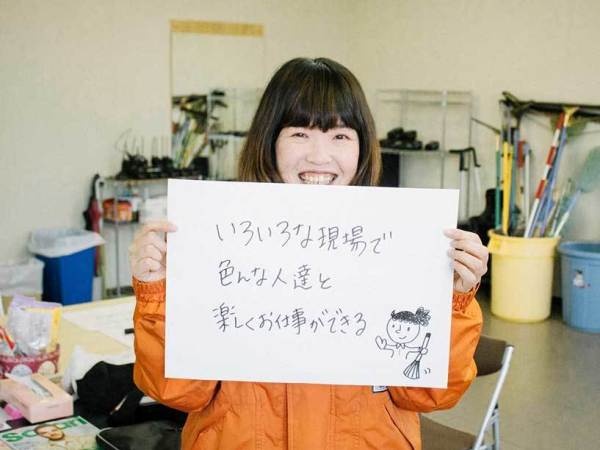 いろいろな現場で
色んな人達と
楽しくお仕事ができる